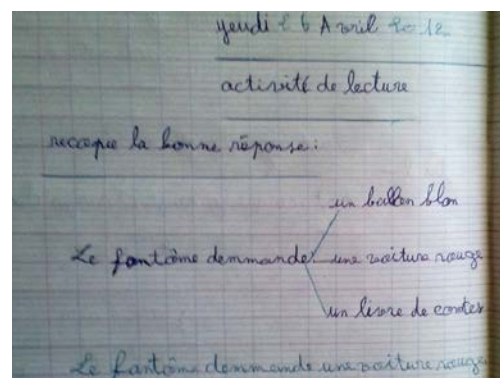 jeudi 26 Avril 2012
activité de lecture
recopie la bonne réponse:
un ballon blan
Le fantôme demmande une voiture rouge
un livre de contes
Le fantôme demmende une voiture rouge